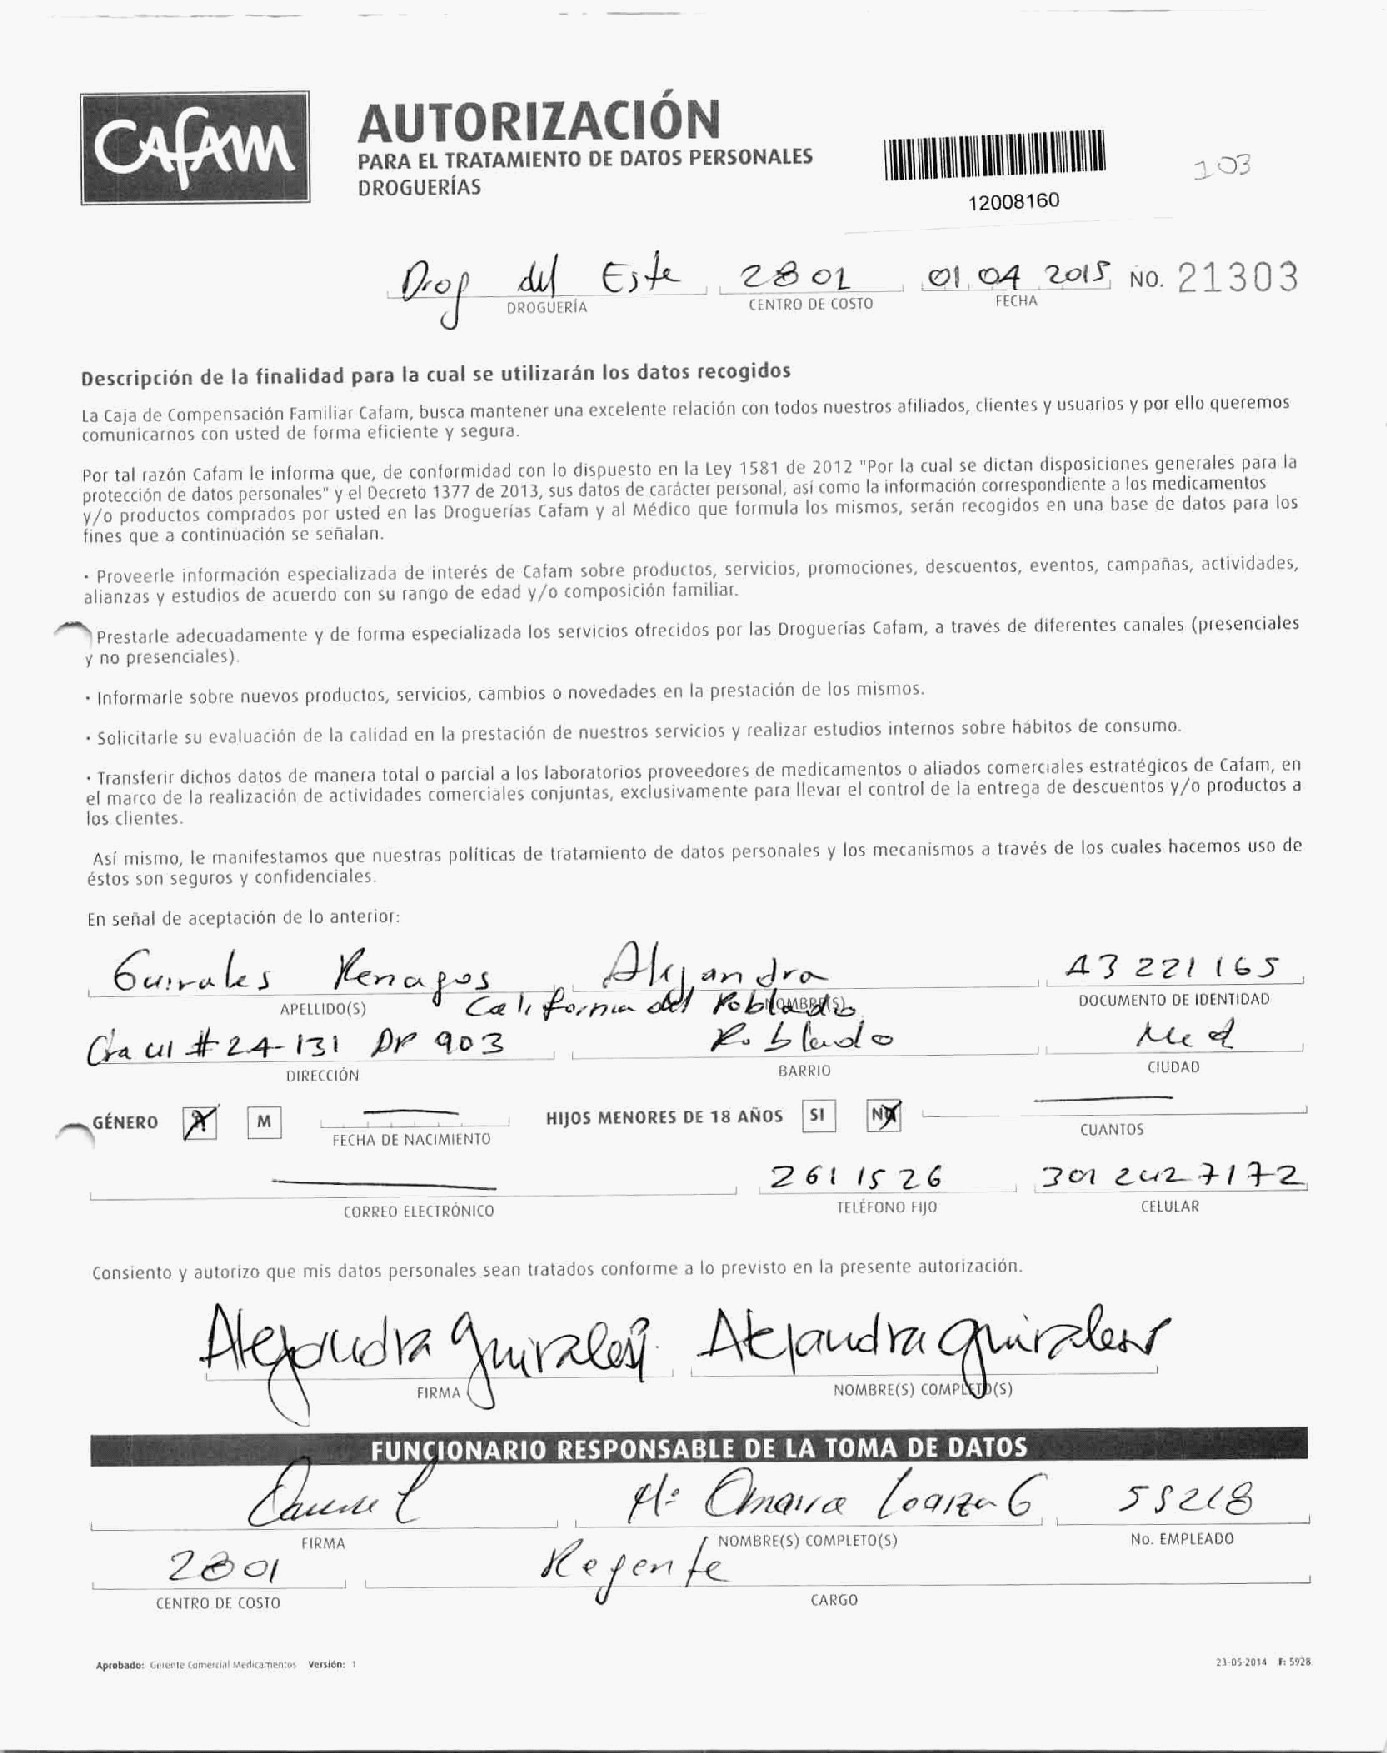 CAFAM
AUTORIZACIÓN
PARA EL TRATAMIENTO DE DATOS PERSONALES
DROGUERÍAS
12008160
103
Drog del Este 2801 01 04 2015 NO. 21303
DROGUERÍA CENTRO DE COSTO FECHA
Descripción de la finalidad para la cual se utilizarán los datos recogidos
La Caja de Compensación Familiar Cafam, busca mantener una excelente relación con todos nuestros afiliados, clientes y usuarios y por ello queremos
comunicarnos con usted de forma eficiente y segura.
Por tal razón Cafam le informa que, de conformidad con lo dispuesto en la Ley 1581 de 2012 "Por la cual se dictan disposiciones generales para la
protección de datos personales" y el Decreto 1377 de 2013, sus datos de carácter personal, así como la información correspondiente a los medicamentos
y/o productos comprados por usted en las Droguerías Cafam y al Médico que formula los mismos, serán recogidos en una base de datos para los
fines que a continuación se señalan.
· Proveerle información especializada de interés de Cafam sobre productos, servicios, promociones, descuentos, eventos, campañas, actividades,
alianzas y estudios de acuerdo con su rango de edad y/o composición familiar.
Prestarle adecuadamente y de forma especializada los servicios ofrecidos por las Droguerías Cafam, a través de diferentes canales (presenciales
y no presenciales).
· Informarle sobre nuevos productos, servicios, cambios o novedades en la prestación de los mismos.
· Solicitarle su evaluación de la calidad en la prestación de nuestros servicios y realizar estudios internos sobre hábitos de consumo.
· Transferir dichos datos de manera total o parcial a los laboratorios proveedores de medicamentos o aliados comerciales estratégicos de Cafam, en
el marco de la realización de actividades comerciales conjuntas, exclusivamente para llevar el control de la entrega de descuentos y/o productos a
los clientes.
Así mismo, le manifestamos que nuestras políticas de tratamiento de datos personales y los mecanismos a través de los cuales hacemos uso de
éstos son seguros y confidenciales.
En señal de aceptación de lo anterior:
Guirales Renagos Alejandra 43 221 165
APELLIDO(S) NOMBRE(S) DOCUMENTO DE IDENTIDAD
California del Poblado
Cra 41 # 24-131 AP 903 Poblado Med
DIRECCIÓN BARRIO CIUDAD
GÉNERO M HIJOS MENORES DE 18 AÑOS SI NO
FECHA DE NACIMIENTO CUANTOS
261 15 26 301 242 7172
CORREO ELECTRÓNICO TELÉFONO FIJO CELULAR
Consiento y autorizo que mis datos personales sean tratados conforme a lo previsto en la presente autorización.
Alejandra Guirales Alejandra Guirales
FIRMA NOMBRE(S) COMPLETO(S)
FUNCIONARIO RESPONSABLE DE LA TOMA DE DATOS
Mª Omaira Loaiza G 55218
FIRMA NOMBRE(S) COMPLETO(S) No. EMPLEADO
2801 Regente
CENTRO DE COSTO CARGO
Aprobado: Gerente Comercial Medicamentos Versión: 1 23-05-2014 F: 5928